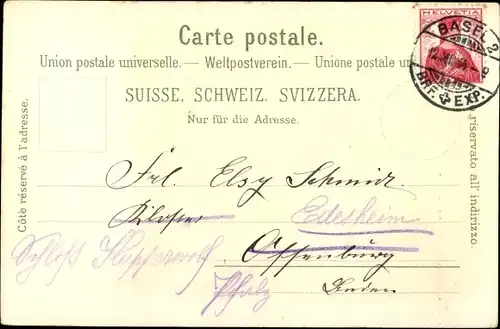 Carte postale.
HELVETIA
BASEL 2
BRF. EXP.
Union postale universelle. — Weltpostverein. — Unione postale un
SUISSE. SCHWEIZ. SVIZZERA.
Nur für die Adresse.
Côté réservé à l'adresse.
riservato all' indirizzo.
Frl. Elsy Schmidt
Kloster
Edesheim
Schloß
Offenburg
Pfalz
Baden